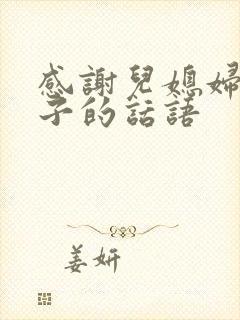 感謝兒媳婦
子的話語
姜妍